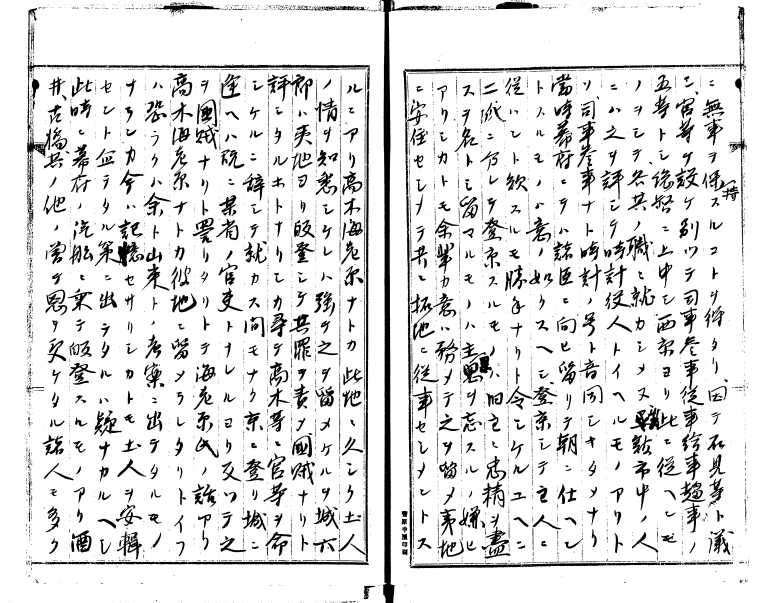 ニ無事ヲ保持スルコトヲ得タリ因テ石見等ト議
シ官等ヲ設ケ別ツテ司事参事従事給事趨事ノ
五等トシ總督ニ上申シ西京ヨリ此ニ従ヘシモ
ノヲシテ各其ノ職ニ就カシメス函館市中ノ人
ニハ之ヲ評シテ時計役人トイヘルモノアリト
ソ司事参事ナト時計ノ号ト音同シキタメナリ
當時幕府ニテハ諸臣ニ向ヒ留リテ朝ニ仕ヘン
トスルモノハ意ノ如クスヘシ登京シテ主人ニ
従ハント欲スルモ勝手ナリト令シケルユヘニ
二派ニ分レテ登京スルモノハ旧主ニ忠精ヲ盡
スヲ名トシ留マルモノハ主恩ヲ忘スルノ嫌ヒ
アリシカトモ余輩カ意ハ務メテ之ヲ留メ夷地
ニ安住セシメテ共ニ拓地ニ従事セシメントス
ルニアリ高木海老原ナトカ此地ニ久シク土人
ノ情ヲ知悉シケレハ強テ之ヲ留メケルヲ城六
郎ハ夷地ヨリ皈登シテ其罪ヲ責メ國賊ナリト
評シタルホトナリシカ尋テ高木等ニ官等ヲ命
シケルニ辞シテ就カス間モナク京ニ登リ城ニ
逢ヘハ既ニ某省ノ官吏トナレルヨリ反ツテ之
ヲ國賊ナリト罵リタリトテ海老原氏ノ話アリ
高木海老原ナトカ彼地ニ留メラレタリトイフ
ハ恐ラクハ余ト山東トノ考案ニ出テタルモノ
ナランカ今ハ記憶セサリシカトモ土人ヲ安輯
セント企テタル策ニ出テタルハ疑ナカルヘシ
此時ニ幕府ノ汽舩ニ乗テ皈登スルモノアリ酒
井、古橋其ノ他ノ曽テ恩ヲ受ケタル諸人モ多ク